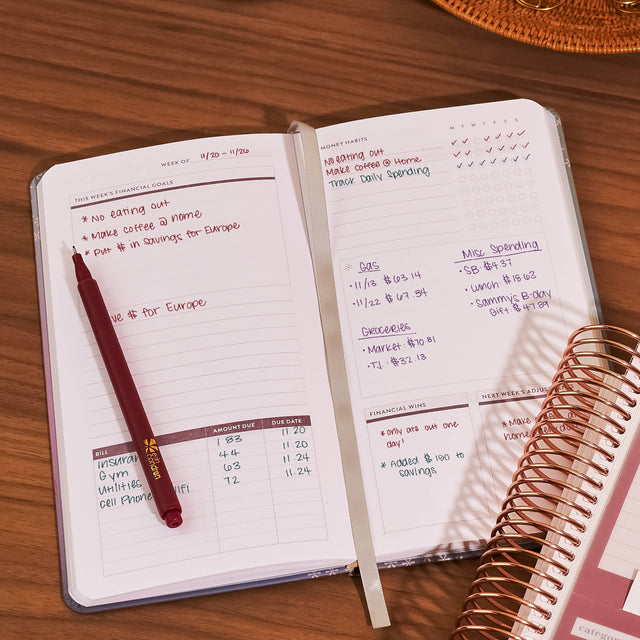 WEEK OF 11/20 - 11/26
THIS WEEK'S FINANCIAL GOALS
* No eating out
* Make coffee @ home
* Put $ in savings for Europe
$ for Europe
BILL AMOUNT DUE DUE DATE
183 11.20
Gym 44 11.20
Utilities 63 11.24
Cell Phone 72 11.24
MONEY HABITS
M T W T F S S
No eating out
Make coffee @ Home
Track Daily Spending
* Gas
• 11/13 $63.14
• 11/22 $67.34
Groceries
• Market: $70.81
• TJ: $32.13
Misc. Spending
• SB: $4.37
• Lunch $15.63
• Sammy's B-day
Gift: $47.89
FINANCIAL WINS
* only ate out one
day!
* Added $190 to
savings
NEXT WEEK'S
* Make
home